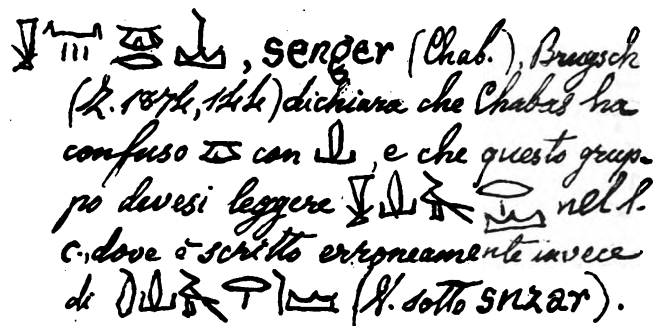 , senger (Chab.), Brugsch
(Z. 1874, 144) dichiara che Chabas ha
confuso con , e che questo grup-
po devesi leggere nel l.
c., dove è scritto erroneamente invece
di (V. sotto snzar).